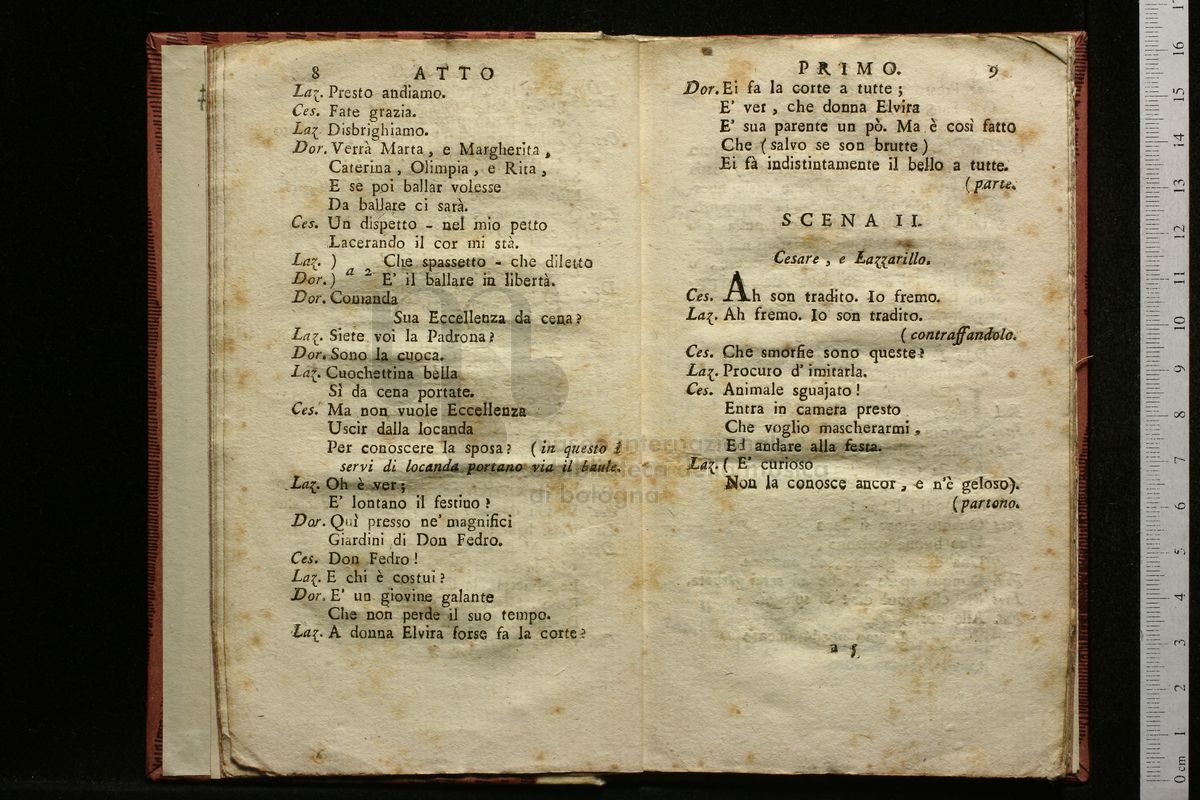 8 ATTO
Laz. Presto andiamo.
Ces. Fate grazia.
Laz. Disbrighiamo.
Dor. Verrà Marta, e Margherita,
Caterina, Olimpia, e Rita,
E se poi ballar volesse
Da ballare ci sarà.
Ces. Un dispetto - nel mio petto
Lacerando il cor mi stà.
Laz. ) Che spassetto - che diletto
a 2
Dor. ) E' il ballare in libertà.
Dor. Comanda
Sua Eccellenza da cena?
Laz. Siete voi la Padrona?
Dor. Sono la cuoca.
Laz. Cuochettina bella
Sì da cena portate.
Ces. Ma non vuole Eccellenza
Uscir dalla locanda
Per conoscere la sposa? (in questo i
servi di locanda portano via il baule.
Laz. Oh è ver;
E' lontano il festino?
Dor. Quì presso ne' magnifici
Giardini di Don Fedro.
Ces. Don Fedro!
Laz. E chi è costui?
Dor. E' un giovine galante
Che non perde il suo tempo.
Laz. A donna Elvira forse fa la corte?
PRIMO. 9
Dor. Ei fa la corte a tutte;
E' ver, che donna Elvira
E' sua parente un pò. Ma è così fatto
Che (salvo se son brutte)
Ei fà indistintamente il bello a tutte.
(parte.
SCENA II.
Cesare, e Lazzarillo.
Ces. Ah son tradito. Io fremo.
Laz. Ah fremo. Io son tradito.
(contraffandolo.
Ces. Che smorfie sono queste?
Laz. Procuro d' imitarla.
Ces. Animale sguajato!
Entra in camera presto
Che voglio mascherarmi,
Ed andare alla festa.
Laz. ( E' curioso
Non la conosce ancor, e n'è geloso).
(partono.
a 5
di bologna
0 cm 1 2 3 4 5 6 7 8 9 10 11 12 13 14 15 16 17